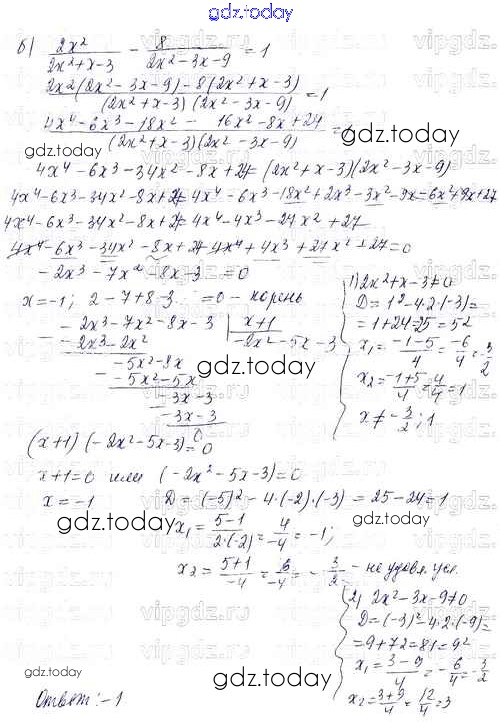 gdz.today
б) 2x²/(2x²+x-3) - 8/(2x²-3x-9) = 1
(2x²(2x²-3x-9)-8(2x²+x-3))/((2x²+x-3)(2x²-3x-9)) = 1
(4x⁴-6x³-18x²-16x²-8x+24)/((2x²+x-3)(2x²-3x-9)) =
gdz.today
gdz.today
4x⁴-6x³-34x²-8x+24=(2x²+x-3)(2x²-3x-9)
4x⁴-6x³-34x²-8x+24=4x⁴-6x³-18x²+2x³-3x²-9x-6x²+9x+27
4x⁴-6x³-34x²-8x+24=4x⁴-4x³-27x²+27
4x⁴-6x³-34x²-8x+24-4x⁴+4x³+27x²+27=0
-2x³-7x²-8x-3=0
x=-1; 2-7+8-3=0 - корень
-2x³-7x²-8x-3 | x+1
-2x³-2x² | -2x²-5x-3
-5x²-8x
-5x²-5x
-3x-3
-3x-3
0
1) 2x²+x-3≠0
D=1²-4·2·(-3)=
=1+24=25=5²
x₁=(-1-5)/4=-6/4=-3/2
x₂=(-1+5)/4=4/4=1
x≠-3/2; 1
gdz.today
(x+1)(-2x²-5x-3)=0
x+1=0 или (-2x²-5x-3)=0
x=-1 D=(-5)²-4·(-2)·(-3)=25-24=1
gdz.today
x₁=(5-1)/(2·(-2))=4/-4=-1;
x₂=(5+1)/-4=6/-4=-3/2 - не удовл. усл.
2) 2x²-3x-9≠0
D=(-3)²-4·2·(-9)=
=9+72=81=9²
x₁=(3-9)/4=-6/4=-3/2
x₂=(3+9)/4=12/4=3
gdz.today
gdz.today
Ответ: -1